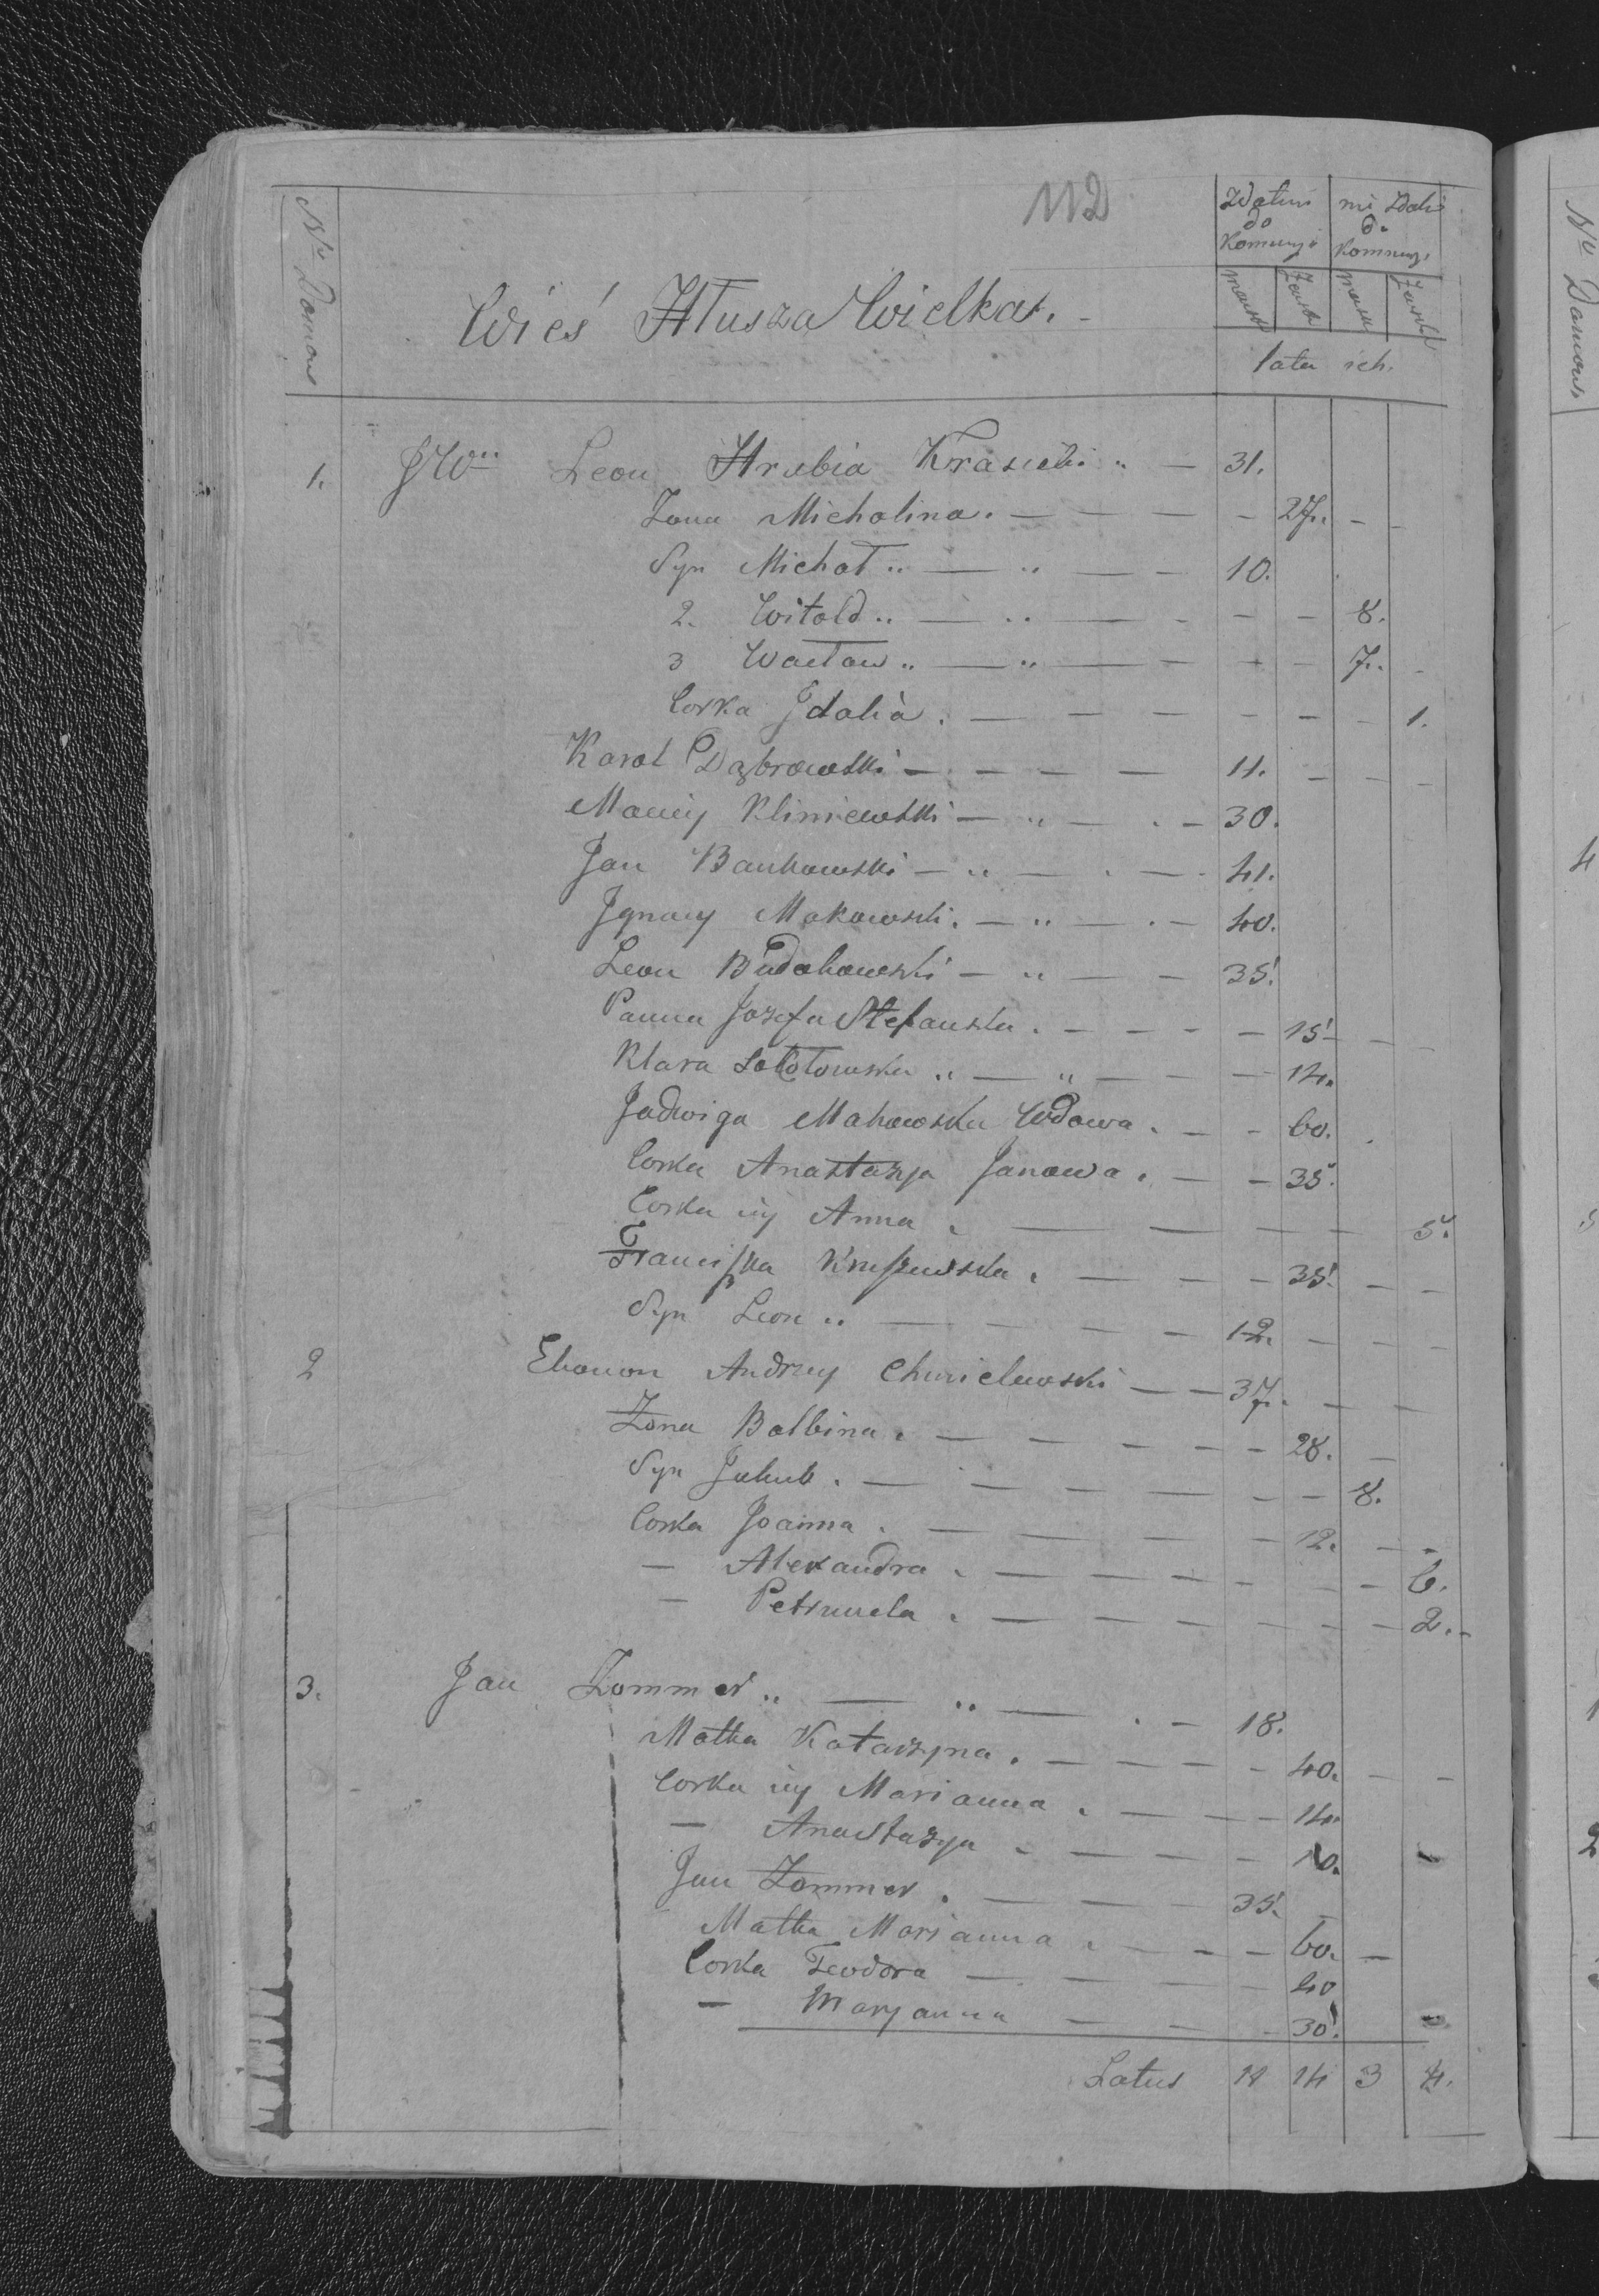 112
Nr Domow
Zdatni do Komunji
nie Zdatni do Komunji
męska Żeńska męska Żeńska
lata ich.
Wieś Hłusza Wielka. -
1. JWn Leon Hrabia Krasicki " — 31.
Zona Michalina. — — — - 27. - -
Syn Michał " — " — - 10.
2. Witold " — " — - - - 8.
3 Wacław " — " — - - - 7. -
Corka Jdalia. — — — - - - 1.
Karol Dąbrowski — — — — 11. - - -
Maciej Kliniewski — " — . - 30.
Jan Bankowski — " — . - 41.
Jgnacy Makowski. — " — . - 40.
Leon Badakowski — " — - 35.
Panna Jozefa Stefanska. - - - - 15 - -
Klara " — " — - - 14.
Jadwiga Makowska Wdowa. - - 60.
Corka Anastazja Janowa. - - 35.
Corka jej Anna. — — — — 5.
Franciszka Kruszewska. — — - - 35. - -
Syn Leon " — — — - 12. - - -
2 Ekonom Andrzej Chmielewski — — 37. - -
Zona Balbina. — — - - - 28. -
Syn Jakub. — — — — - - 8.
Corka Joanna. — — — - 12. - -
— Alexandra. — — — - - - 6.
— Petrunela. — — — - - - 2. -
3. Jan Zommer " — " — . - 18.
Matka Katarzyna. — — - - 40. - -
Corka jej Marianna. — - - 14.
— Anastazya - — — - - 10. -
Jan Zommer. — — - 35. -
Matka Marianna. — - - 60. -
Corka Teodora — — — - 40
— Maryanna — — - 30. -
Latus 11 14 3 4.
Nr Domow
4
2